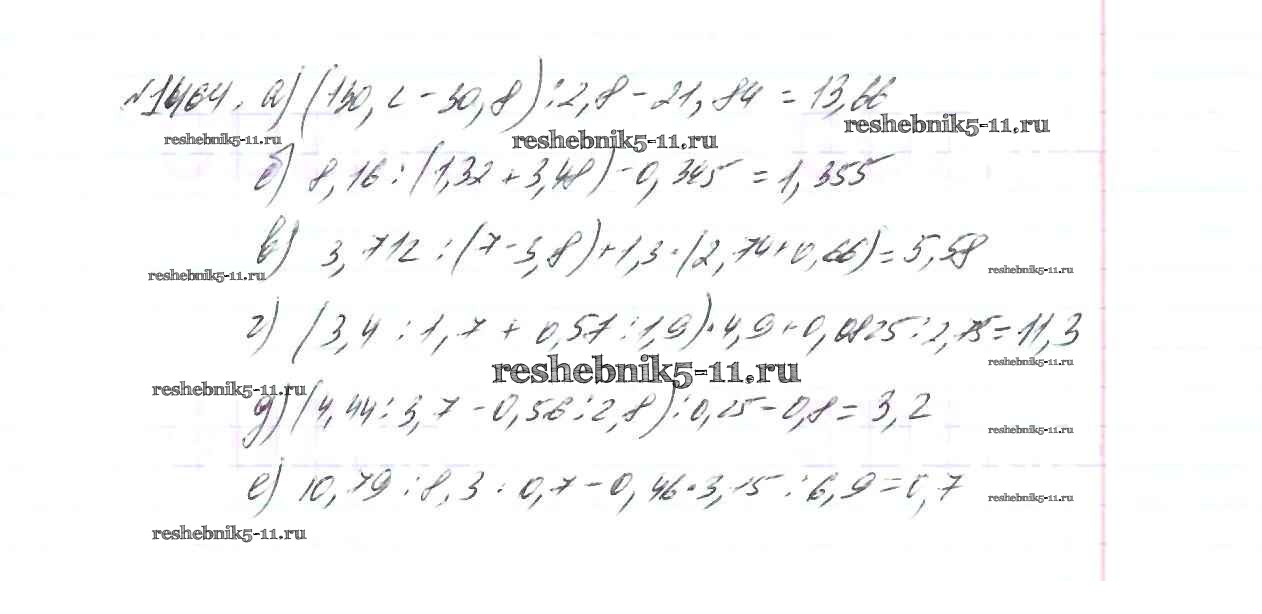 №1464. а) (130,2 - 30,8) : 2,8 - 21,84 = 13,66
reshebnik5-11.ru reshebnik5-11.ru reshebnik5-11.ru
б) 8,16 : (1,32 + 3,48) - 0,345 = 1,355
в) 3,712 : (7 - 3,8) + 1,3 · (2,74 + 0,66) = 5,58
reshebnik5-11.ru reshebnik5-11.ru
г) (3,4 : 1,7 + 0,57 : 1,9) · 4,9 + 0,0825 : 2,75 = 11,3
reshebnik5-11.ru reshebnik5-11.ru
reshebnik5-11.ru
д) (4,44 : 3,7 - 0,56 : 2,8) : 0,25 - 0,8 = 3,2
reshebnik5-11.ru
е) 10,79 : 8,3 · 0,7 - 0,46 · 3,15 : 6,9 = 0,7
reshebnik5-11.ru
reshebnik5-11.ru